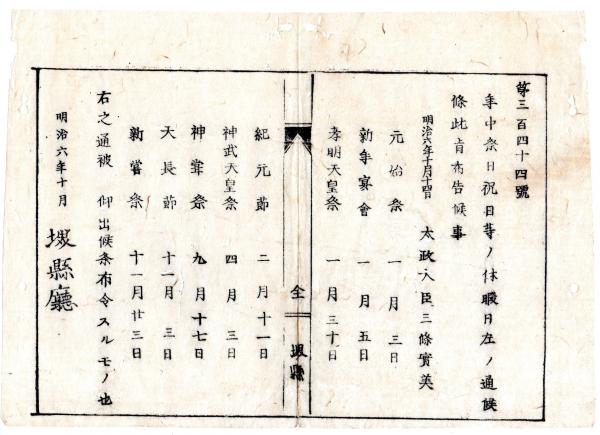 第三百四十四號
年中祭日祝日等ノ休暇日左ノ通候
條此旨布告候事
明治六年十月十四日　太政大臣三條實美
元始祭　一月三日
新年宴會　一月五日
孝明天皇祭　一月三十日
全　堺縣
紀元節　二月十一日
神武天皇祭　四月三日
神嘗祭　九月十七日
天長節　十一月三日
新嘗祭　十一月廿三日
右之通被　仰出候条布令スルモノ也
明治六年十月
堺縣廳